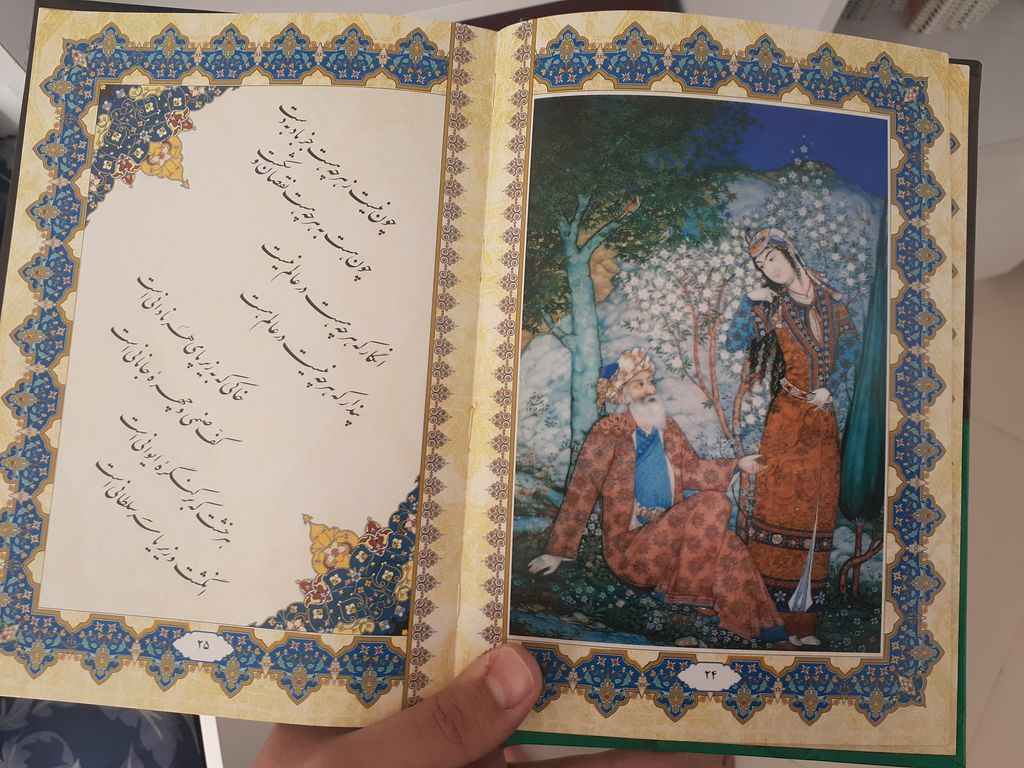 ۲۴
چون نیست ز هر چه هست جز باد بدست
چون هست به هر چه هست نقصان و شکست
انگار که هر چه هست در عالم نیست
پندار که هر چه نیست در عالم است
خاکی که به زیر پای هر نادانی است
کف صنمی و چهرهٔ جانانی است
هر خشت که بر کنگرهٔ ایوانی است
انگشت وزیر یا سر سلطانی است
۲۵